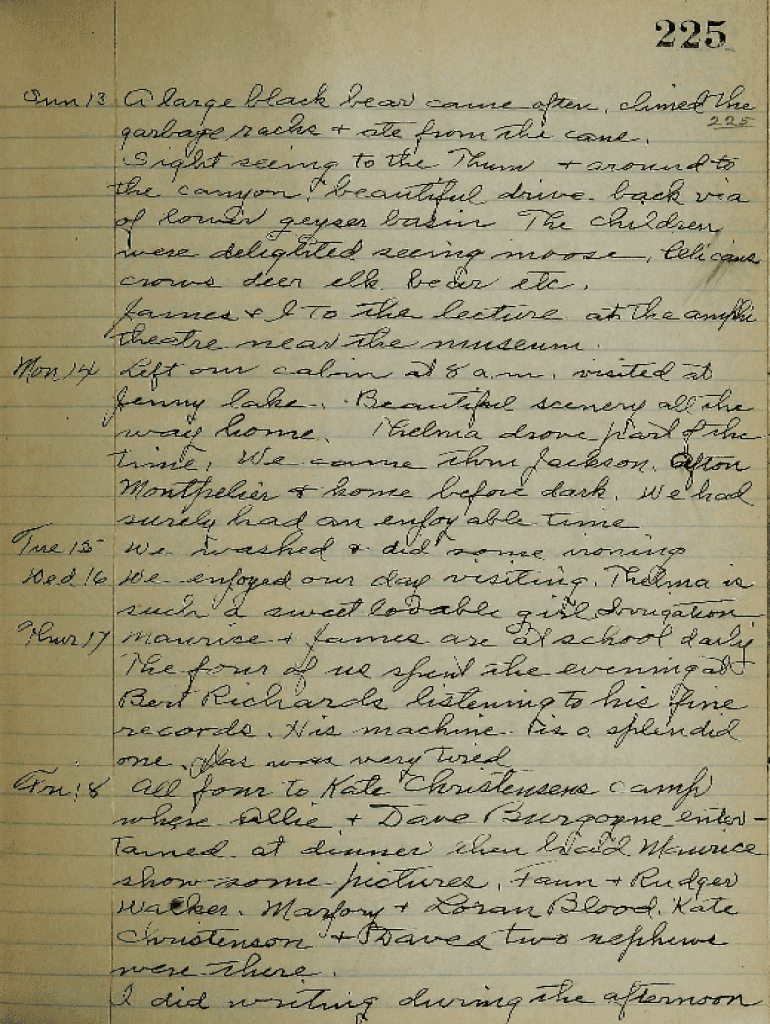 225
Sun 13 A large black bear came often, climed the
225
garbage racks + ate from the cans.
Sight seeing to the Thum + around to
the canyon. beautiful drive. back via
of lower geyser basin The children
were delighted seeing moose, Pelicans
crows deer elk bear etc.
James + I to the lecture at the amphi
theatre near the museum.
Mon 14 Left our cabin at 8 a.m. visited at
Jenny lake. Beautiful scenery all the
way home. Thelma drove part of the
time. We came thru Jackson, Afton
Montpelier + home before dark. We had
surely had an enjoyable time
Tue 15 We washed + did some ironing
Wed 16 We enjoyed our day visiting. Thelma is
such a sweet lovable girl Irrigation
Thur 17 Maurise + James are at school daily
The four of us spent the evening at
Bert Richards listening to his fine
records. His machine is a splendid
one. was very tired
Fri 18 All four to Kate Christensens camp
where Ollie + Dave Burgoyne enter-
tained at dinner then had Maurice
show some pictures. Faun + Rudger
Walker. Marjory + Loran Blood. Kate
Christenson + Daves two nephews
were there.
I did writing during the afternoon